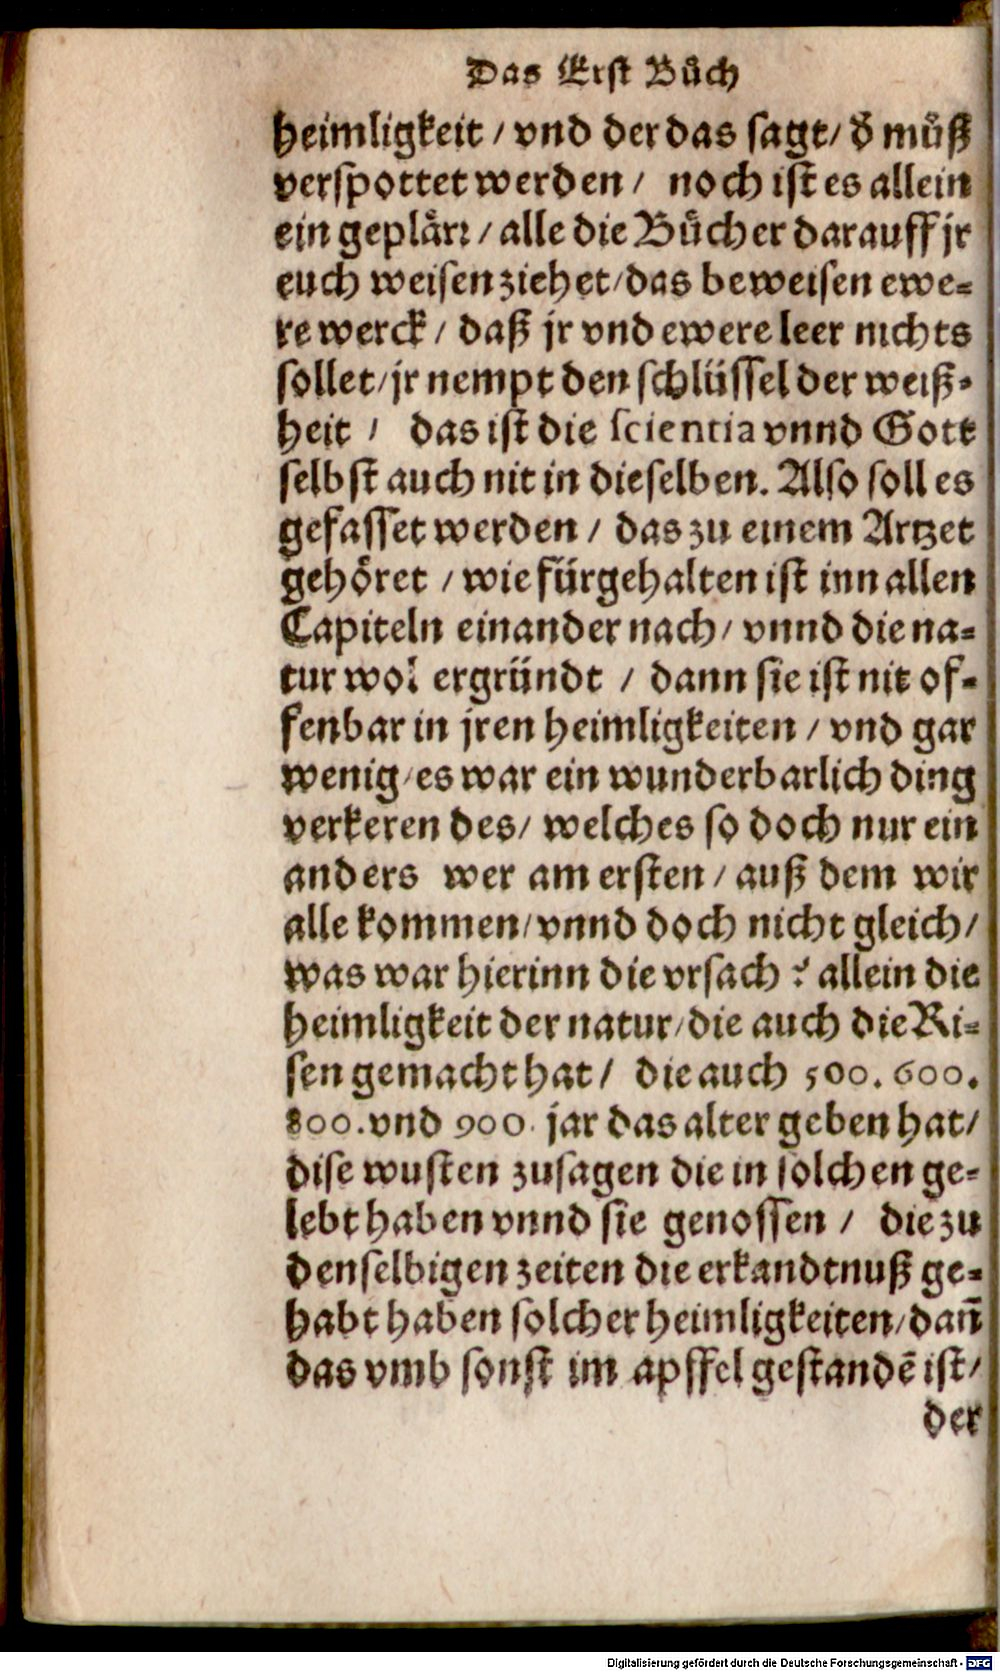 Das Erst Bůch
heimligkeit / vnd der das sagt / d̄ můß
verspottet werden / noch ist es allein
ein geplärr / alle die Bůcher darauff jr
euch weisen ziehet / das beweisen ewe⸗
re werck / daß jr vnd ewere leer nichts
sollet / jr nempt den schlüssel der weiß⸗
heit / das ist die scientia vnnd Gott
selbst auch nit in dieselben. Also soll es
gefasset werden / das zu einem Artzet
gehöret / wie fürgehalten ist inn allen
Capiteln einander nach / vnnd die na⸗
tur wol ergründt / dann sie ist nit of⸗
fenbar in jren heimligkeiten / vnd gar
wenig / es war ein wunderbarlich ding
verkeren des / welches so doch nur ein
anders wer am ersten / auß dem wir
alle kommen / vnnd doch nicht gleich /
was war hierinn die vrsach ? allein die
heimligkeit der natur / die auch die Ri⸗
sen gemacht hat / die auch 500. 600.
800. vnd 900. jar das alter geben hat /
dise wusten zusagen die in solchen ge⸗
lebt haben vnnd sie genossen / die zu
denselbigen zeiten die erkandtnuß ge⸗
habt haben solcher heimligkeiten / dañ
das vmb sonst im apffel gestandē ist /
der
Digitalisierung gefördert durch die Deutsche Forschungsgemeinschaft - DFG